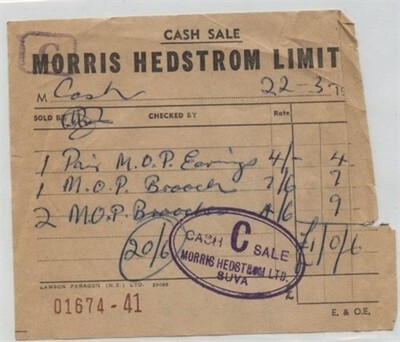 CASH SALE
C
MORRIS HEDSTROM LIMIT
M Cash 22-3-19
SOLD BY CHECKED BY Rate
1 Pair M.O.P. Earings 4/- 4 -
1 M.O.P. Brooch 7/6 7
2 M.O.P. Brooches 4/6 9 -
20/6 £1/0/6
CASH C SALE
MORRIS HEDSTROM LTD.
SUVA
£
LAWSON PARAGON (N.Z.) LTD.
E. & O.E.
01674-41